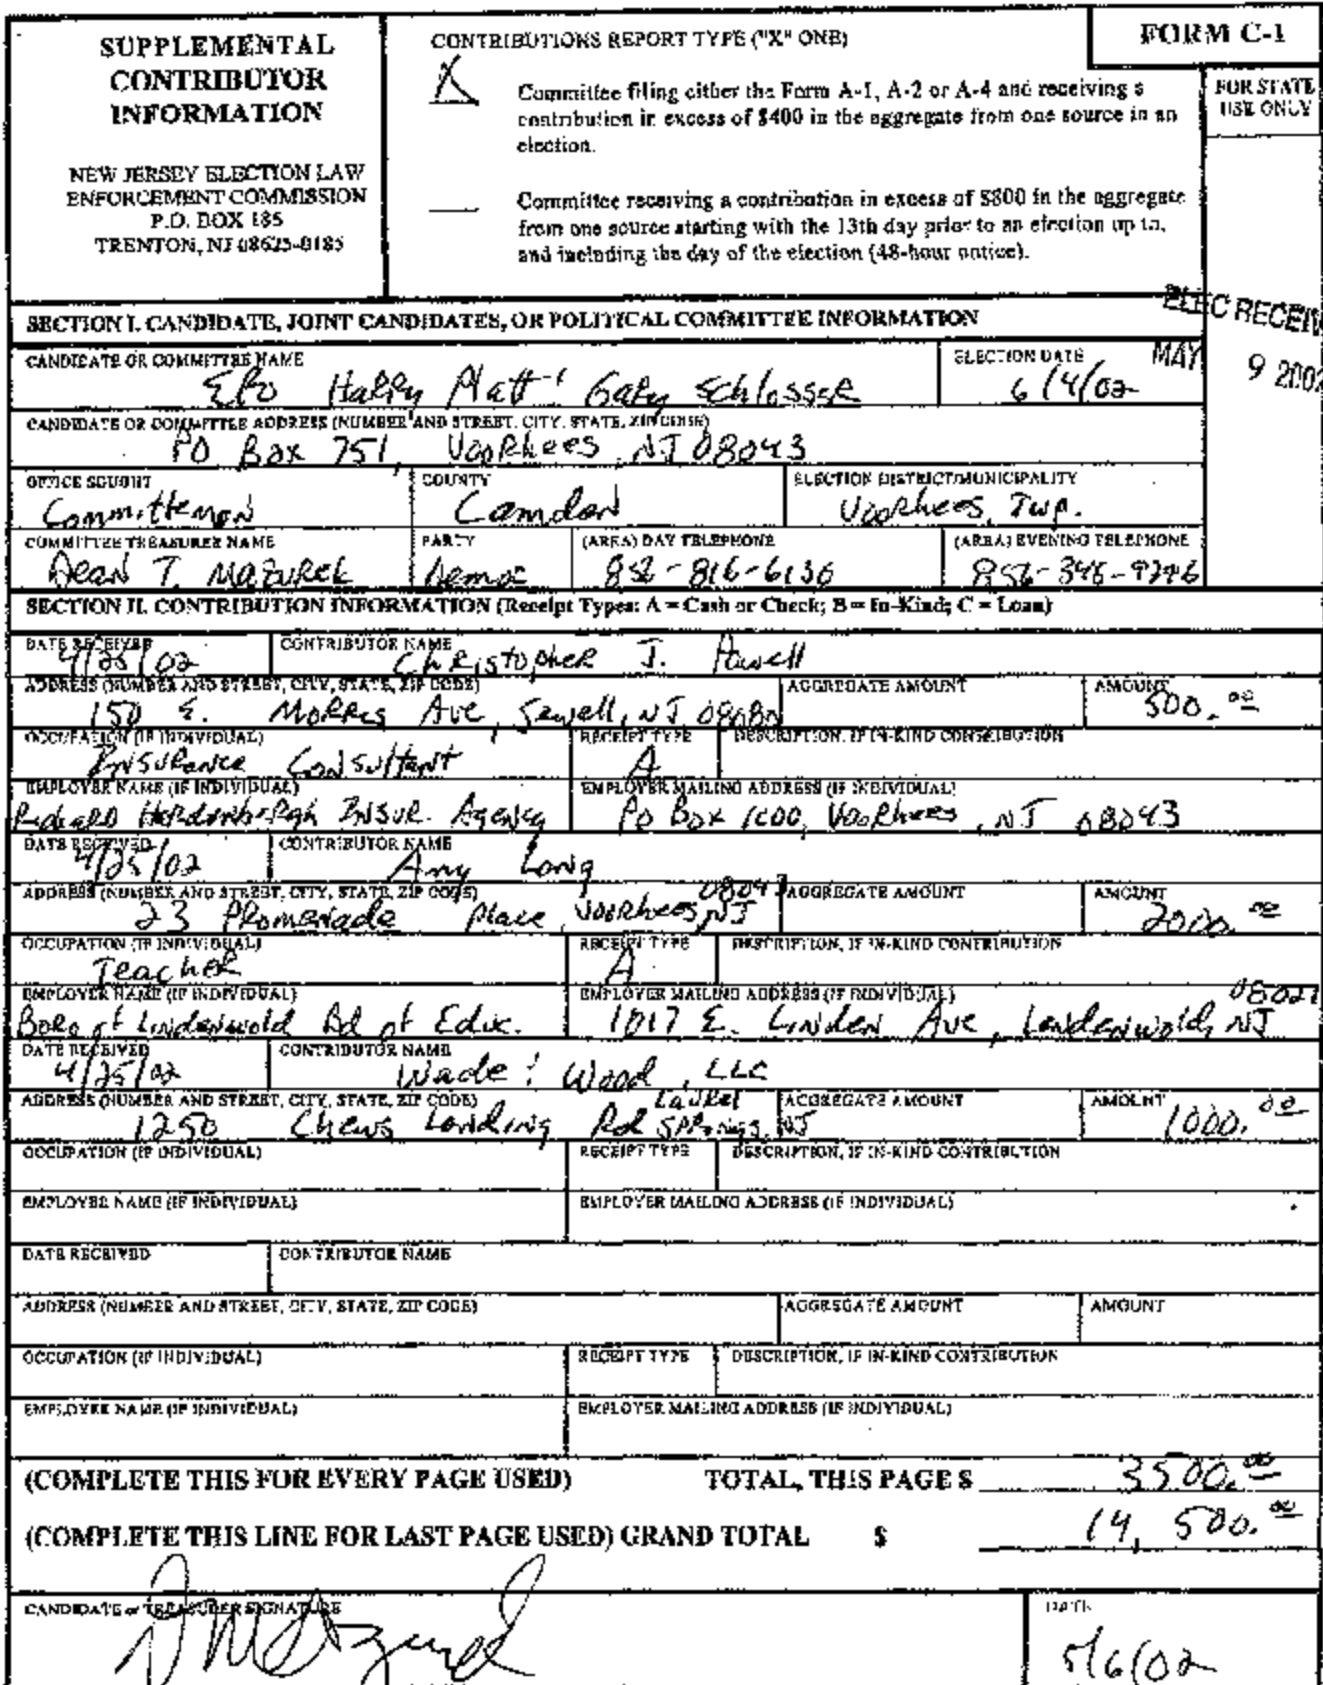 SUPPLEMENTAL
CONTRIBUTOR
INFORMATION
NEW JERSEY ELECTION LAW
ENFORCEMENT COMMISSION
P.O. BOX 185
TRENTON, NJ 08625-0185
CONTRIBUTIONS REPORT TYPE ("X" ONE)
FORM C-1
FOR STATE
USE ONLY
X
Committee filing either the Form A-1, A-2 or A-4 and receiving a
contribution in excess of $400 in the aggregate from one source in an
election.
Committee receiving a contribution in excess of $800 in the aggregate
from one source starting with the 13th day prior to an election up to,
and including the day of the election (48-hour notice).
ELEC RECEIV
MAY 9 2002
SECTION I. CANDIDATE, JOINT CANDIDATES, OR POLITICAL COMMITTEE INFORMATION
CANDIDATE OR COMMITTEE NAME
EFO Harry Platt & Gary Schlosser
ELECTION DATE
6/4/02
CANDIDATE OR COMMITTEE ADDRESS (NUMBER AND STREET, CITY, STATE, ZIP CODE)
PO Box 751, Voorhees, NJ 08043
OFFICE SOUGHT
Committeman
COUNTY
Camden
ELECTION DISTRICT/MUNICIPALITY
Voorhees, Twp.
COMMITTEE TREASURER NAME
Dean T. Mazurek
PARTY
Democ
(AREA) DAY TELEPHONE
856-816-6136
(AREA) EVENING TELEPHONE
856-346-9246
SECTION II. CONTRIBUTION INFORMATION (Receipt Types: A = Cash or Check; B = In-Kind; C = Loan)
DATE RECEIVED
4/25/02
CONTRIBUTOR NAME
Christopher J. Powell
ADDRESS (NUMBER AND STREET, CITY, STATE, ZIP CODE)
150 E. Morris Ave, Sewell, NJ 08080
AGGREGATE AMOUNT
AMOUNT
500.00
OCCUPATION (IF INDIVIDUAL)
Insurance Consultant
RECEIPT TYPE
A
DESCRIPTION, IF IN-KIND CONTRIBUTION
EMPLOYER NAME (IF INDIVIDUAL)
Richard Hardenbergh Insur. Agency
EMPLOYER MAILING ADDRESS (IF INDIVIDUAL)
Po Box 1000, Voorhees, NJ 08043
DATE RECEIVED
4/25/02
CONTRIBUTOR NAME
Amy Long
ADDRESS (NUMBER AND STREET, CITY, STATE, ZIP CODE)
23 Promenade Place, Voorhees, NJ 08043
AGGREGATE AMOUNT
AMOUNT
2000.00
OCCUPATION (IF INDIVIDUAL)
Teacher
RECEIPT TYPE
A
DESCRIPTION, IF IN-KIND CONTRIBUTION
EMPLOYER NAME (IF INDIVIDUAL)
Boro of Lindenwold Bd of Educ.
EMPLOYER MAILING ADDRESS (IF INDIVIDUAL)
1017 E. Linden Ave, Lindenwold, NJ 08021
DATE RECEIVED
4/25/02
CONTRIBUTOR NAME
Wade & Wood, LLC
ADDRESS (NUMBER AND STREET, CITY, STATE, ZIP CODE)
1250 Chews Landing Rd Laurel Springs, NJ
AGGREGATE AMOUNT
AMOUNT
1000.00
OCCUPATION (IF INDIVIDUAL)
RECEIPT TYPE
DESCRIPTION, IF IN-KIND CONTRIBUTION
EMPLOYER NAME (IF INDIVIDUAL)
EMPLOYER MAILING ADDRESS (IF INDIVIDUAL)
DATE RECEIVED
CONTRIBUTOR NAME
ADDRESS (NUMBER AND STREET, CITY, STATE, ZIP CODE)
AGGREGATE AMOUNT
AMOUNT
OCCUPATION (IF INDIVIDUAL)
RECEIPT TYPE
DESCRIPTION, IF IN-KIND CONTRIBUTION
EMPLOYER NAME (IF INDIVIDUAL)
EMPLOYER MAILING ADDRESS (IF INDIVIDUAL)
(COMPLETE THIS FOR EVERY PAGE USED) TOTAL, THIS PAGE $ 3500.00
(COMPLETE THIS LINE FOR LAST PAGE USED) GRAND TOTAL $ 14,500.00
CANDIDATE or TREASURER SIGNATURE
DATE
5/6/02